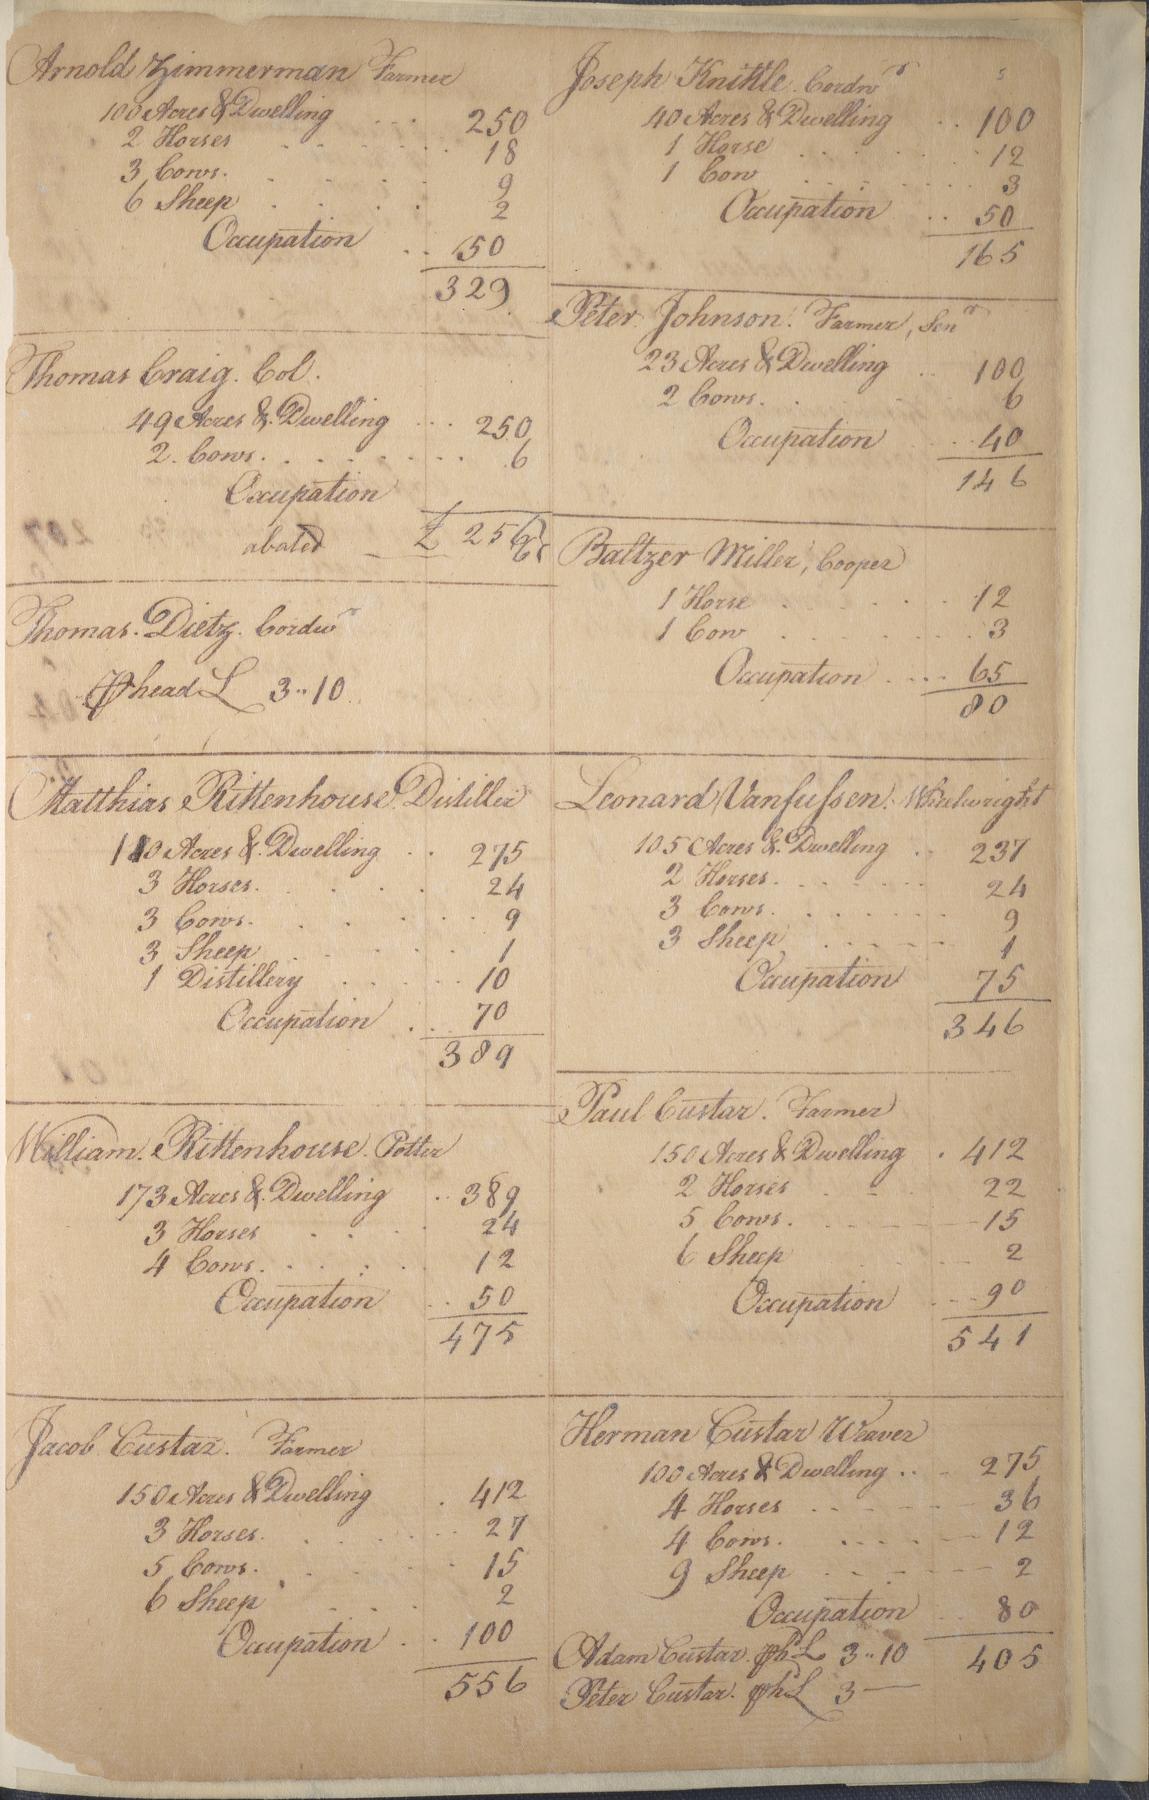 Arnold Zimmerman Farmer
100 Acres & Dwelling ... 250
2 Horses . . . . . . 18
3 Cows. . . . . 9
6 Sheep . . . . 2
Occupation .. 50
329
Thomas Craig. Col.
49 Acres & Dwelling ... 250
2. Cows. . . . . . . . 6
Occupation
abated £ 256
Thomas. Dietz. Cordwr
⅌ head L 3..10
Matthias Rittenhouse. Distiller
110 Acres & Dwelling .. 275
3 Horses. . . . . 24
3 Cows. . . . . . 9
3 Sheep . . . . 1
1 Distillery . . . . . 10
Occupation . .. 70
389
William. Rittenhouse. Potter
173 Acres & Dwelling .. 389
3 Horses . . . . 24
4 Cows. . . . . . 12
Occupation .. 50
475
Jacob Custar. Farmer
150 Acres & Dwelling . 412
3 Horses. . . . . . 27
5 Cows. . . . . . 15
6 Sheep . . . . 2
Occupation . .. 100
556
Joseph Knittle. Cordwr
40 Acres & Dwelling .. 100
1 Horse . . . . . . 12
1 Cow . . . . . . 3
Occupation .. 50
165
Peter Johnson. Farmer, Senr
23 Acres & Dwelling .. 100
2 Cows. . . 6
Occupation ... 40
146
Baltzer Miller, Cooper
1 Horse . . . . . . 12
1 Cow . . . . . . . 3
Occupation .... 65
80
Leonard Vanfussen. Wheelwright
105 Acres & Dwelling .. 237
2 Horses. . . . . . . 24
3 Cows. . . . . . . 9
3 Sheep . . . . . 1
Occupation 75
346
Paul Custar. Farmer
150 Acres & Dwelling . 412
2 Horses . . . 22
5 Cows. . . . . 15
6 Sheep . . . 2
Occupation ... 90
541
Herman Custar Weaver
100 Acres & Dwelling .. . 275
4 Horses . . . . . . 36
4 Cows. . . . . . 12
9 Sheep . . . . . 2
Occupation .. 80
405
Adam Custar. ⅌ h L 3..10
Peter Custar. ⅌ h L 3 —